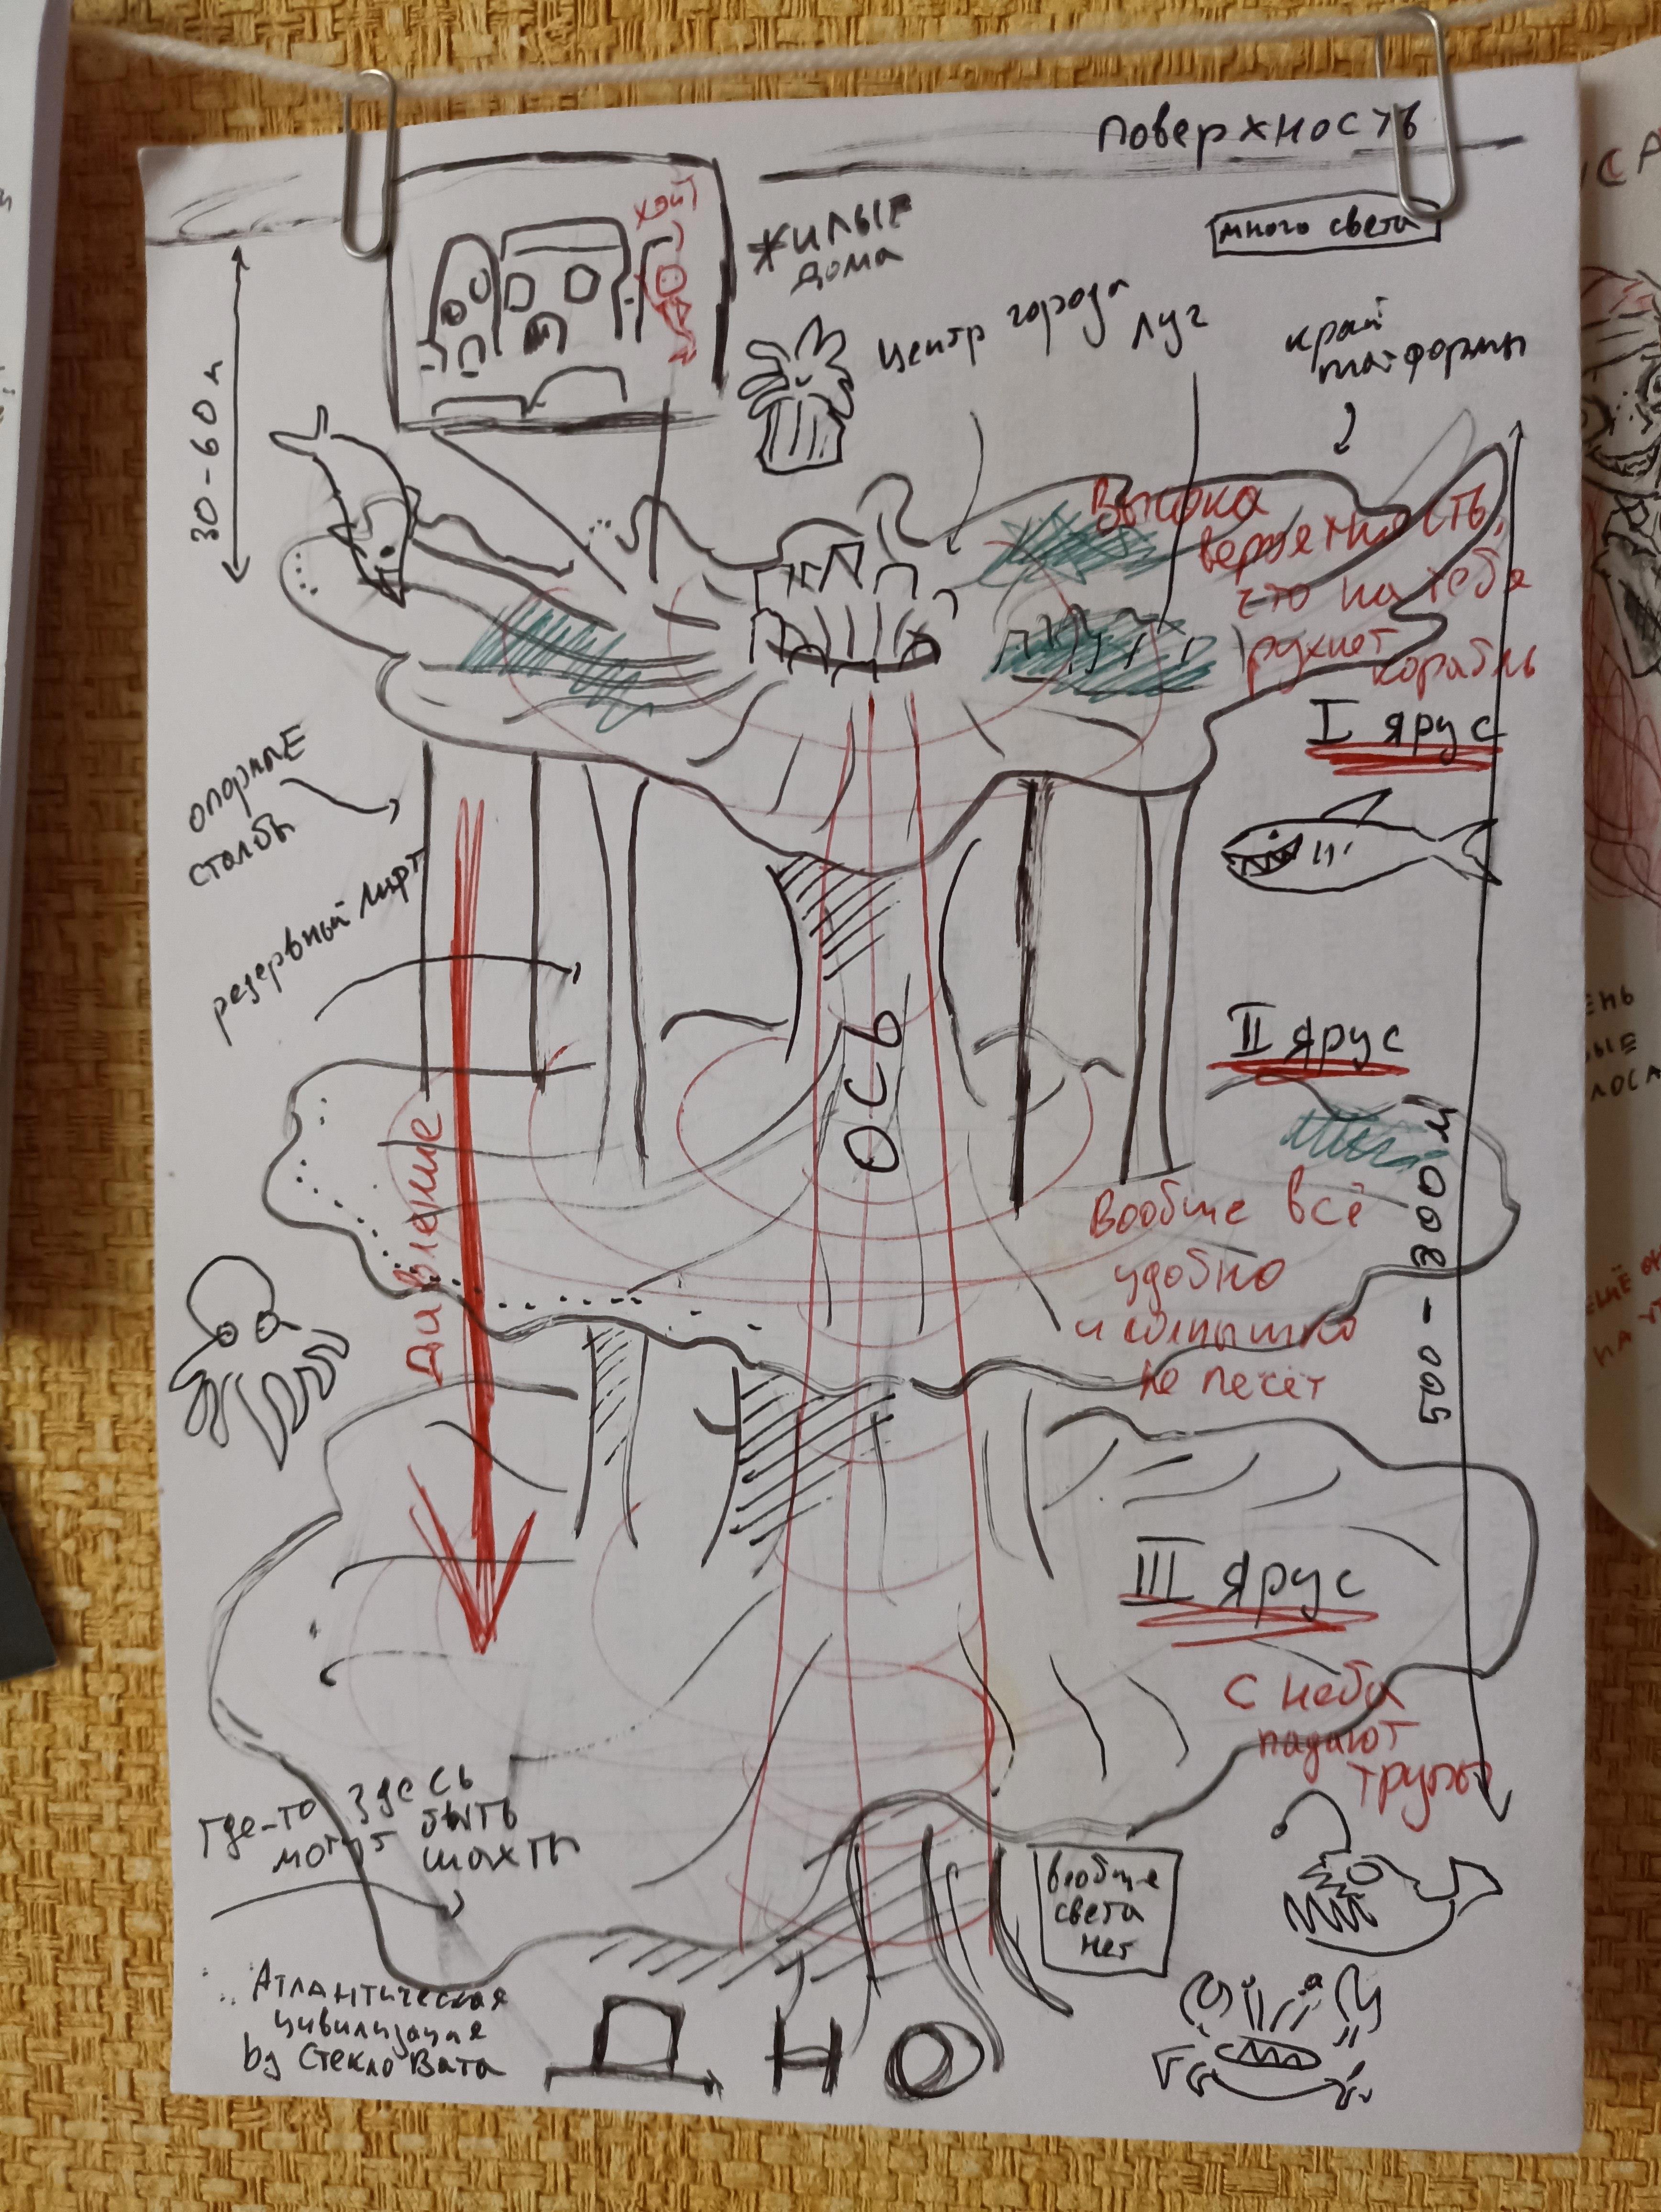 поверхность
много света
хэйт
жилые
дома
центр города
луг
край
платформы
30-60 м
Высока
вероятность,
что на тебя
рухнет
корабль
I ярус
опорные
столбы
резервный лифт
II ярус
ось
Давление
500-800 м
Вообще всё
удобно
и солнышко
не печёт
III ярус
С неба
падают
трупы
Где-то здесь
могут быть
шахты
вообще
света
нет
Атлантическая
цивилизация
by Стекло Вата
ДНО